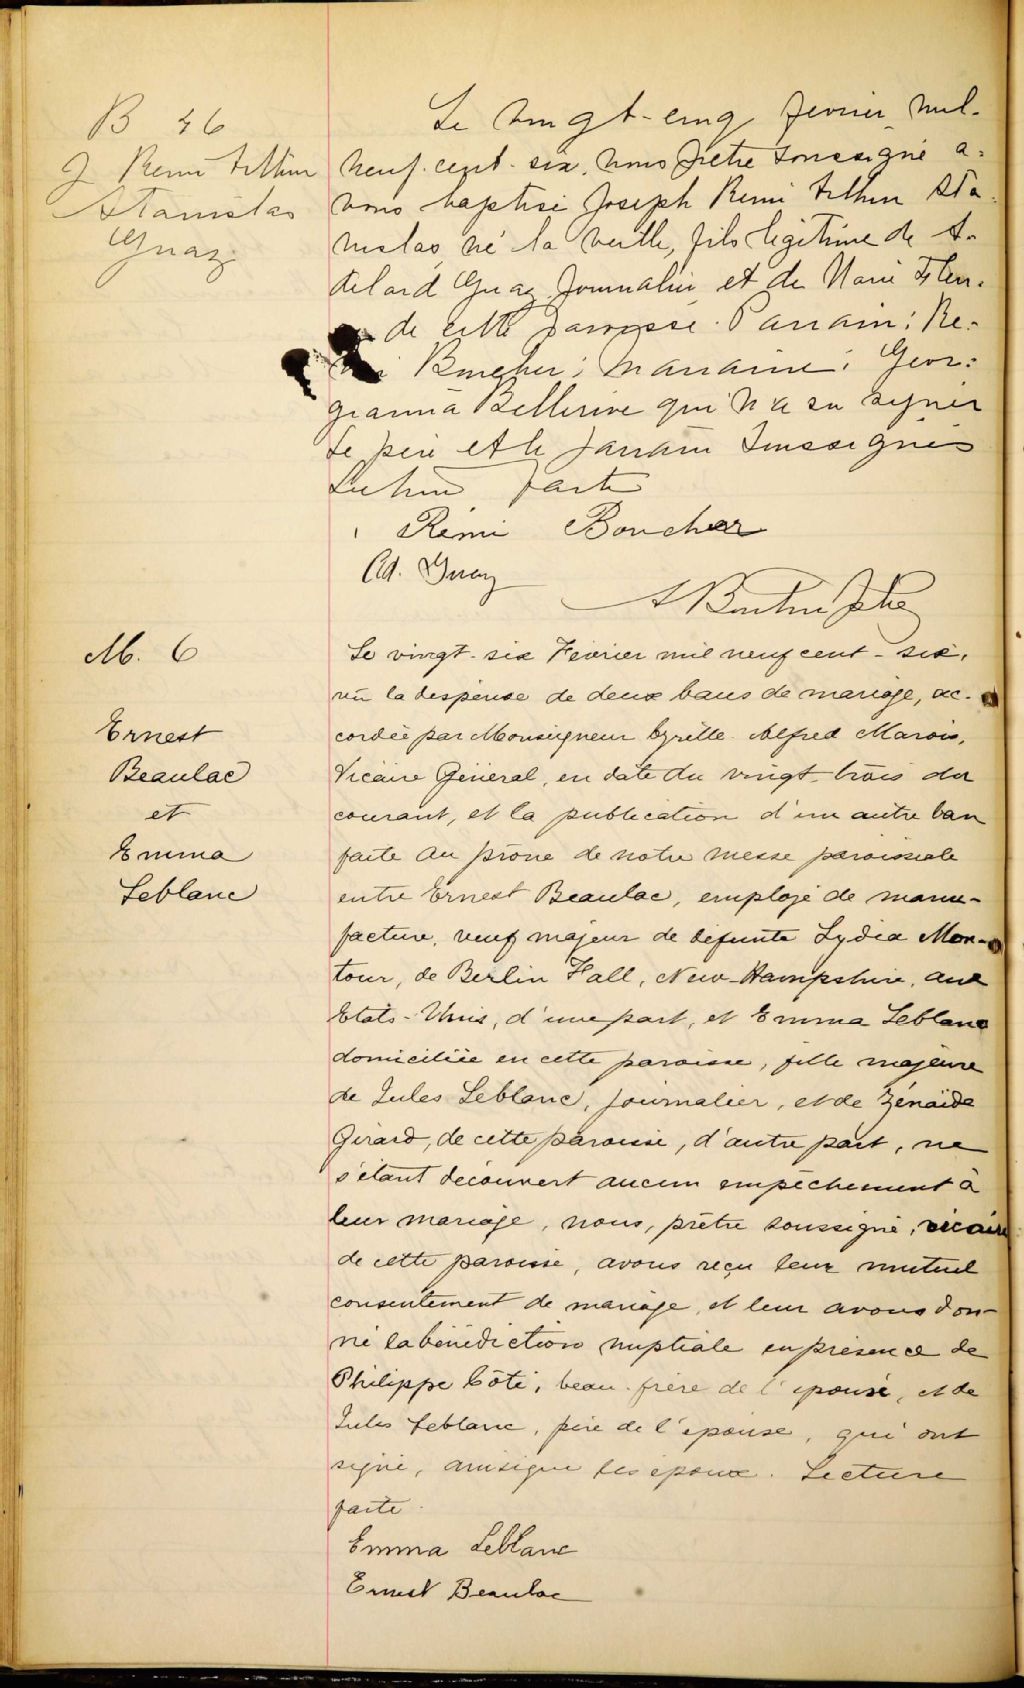 B 46
J Remi Arthur
Stanislas
Guay.
Le vingt-cinq février mil-
neuf-cent-six, nous prêtre soussigné a-
vons baptisé Joseph Remi Arthur Sta-
nislas, né la veille, fils légitime de A-
delard Guay Journalier et de Marie
de cette paroisse. Parrain: Re-
mi Boucher; marraine: Geor-
gianna Bellerive qui n'a su signer
Le père et le parrain soussignés
Lecture faite
Rémi Boucher
Ad. Guay
M. 6
Ernest
Beaulac
et
Emma
Leblanc
Le vingt-six Février mil neuf cent-six,
vu la dispense de deux bans de mariage, ac-
cordée par Monseigneur Cyrille Alfred Marois,
Vicaire Général, en date du vingt-trois du
courant, et la publication d'un autre ban
faite au prône de notre messe paroissiale
entre Ernest Beaulac, employé de manu-
facture, veuf majeur de défunte Lydia Mon-
tour, de Berlin Fall, New-Hampshire, aux
Etats-Unis, d'une part, et Emma Leblanc
domiciliée en cette paroisse, fille majeure
de Jules Leblanc, journalier, et de Zénaïde
Girard, de cette paroisse, d'autre part, ne
s'étant découvert aucun empêchement à
leur mariage, nous, prêtre soussigné, vicaire
de cette paroisse, avons reçu leur mutuel
consentement de mariage et leur avons don-
né la bénédiction nuptiale en présence de
Philippe Côté, beau-frère de l'épouse, et de
Jules Leblanc, père de l'épouse, qui ont
signé, ainsi que les époux. Lecture
faite.
Emma Leblanc
Ernest Beaulac